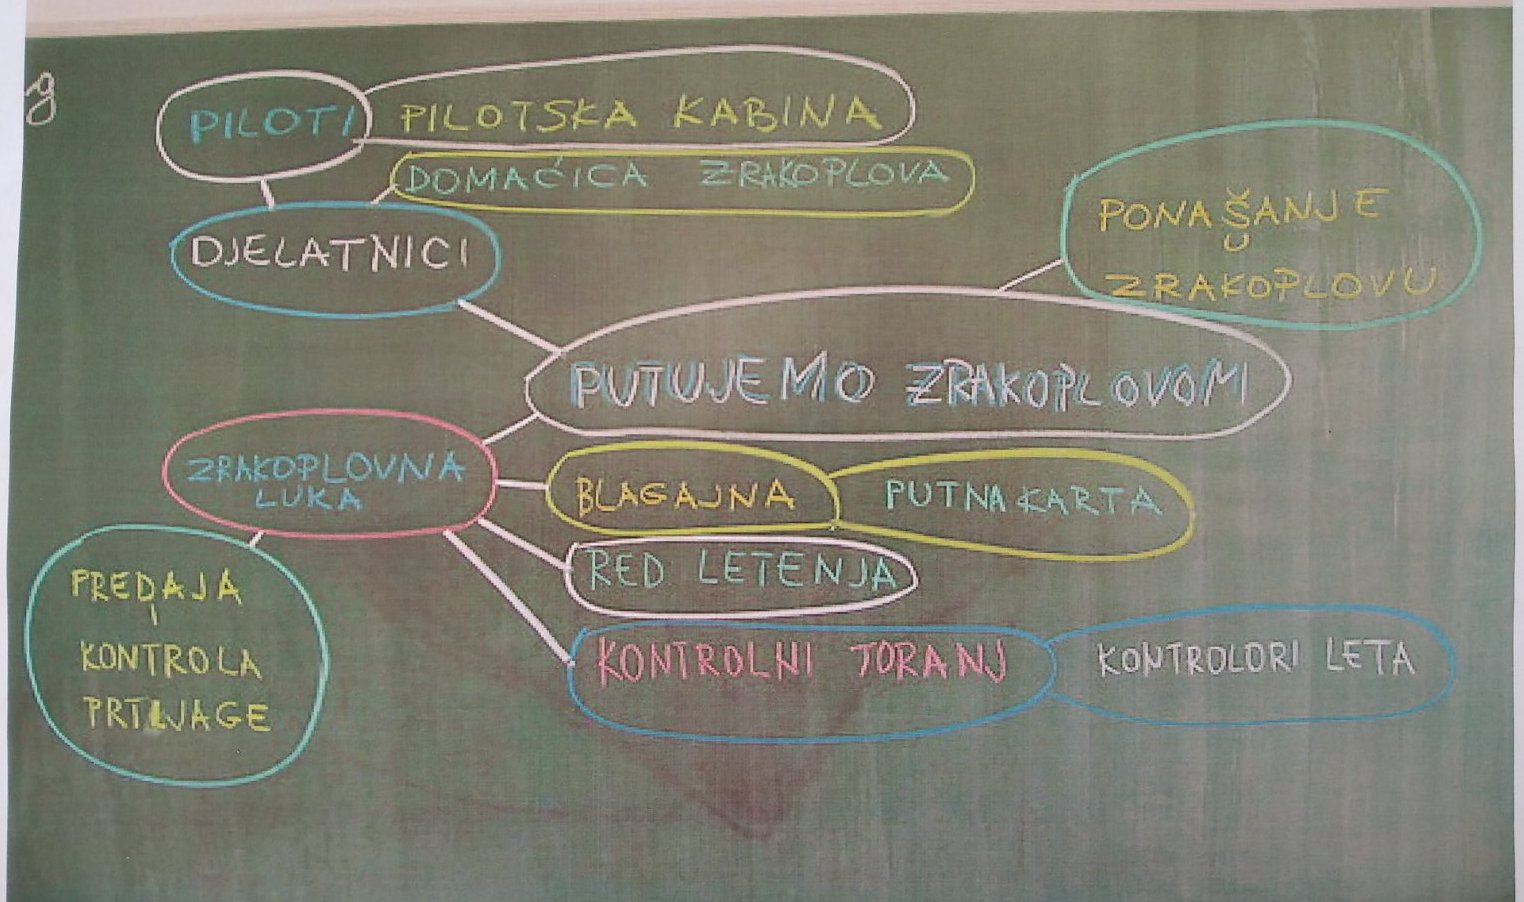 PILOTI
PILOTSKA KABINA
DOMAĆICA ZRAKOPLOVA
DJELATNICI
PONAŠANJE
U
ZRAKOPLOVU
PUTUJEMO ZRAKOPLOVOM
ZRAKOPLOVNA
LUKA
BLAGAJNA
PUTNA KARTA
RED LETENJA
PREDAJA
I
KONTROLA
PRTLJAGE
KONTROLNI TORANJ
KONTROLORI LETA